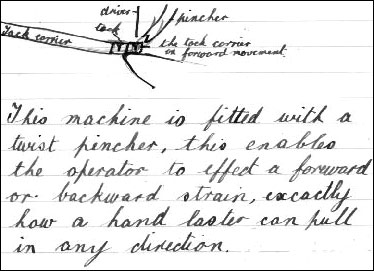 driver
pincher
tack
Tack carrier
the tack carrier
in forward movement
This machine is fitted with a
twist pincher, this enables
the operator to effect a forward
or backward strain, excactly
how a hand laster can pull
in any direction.